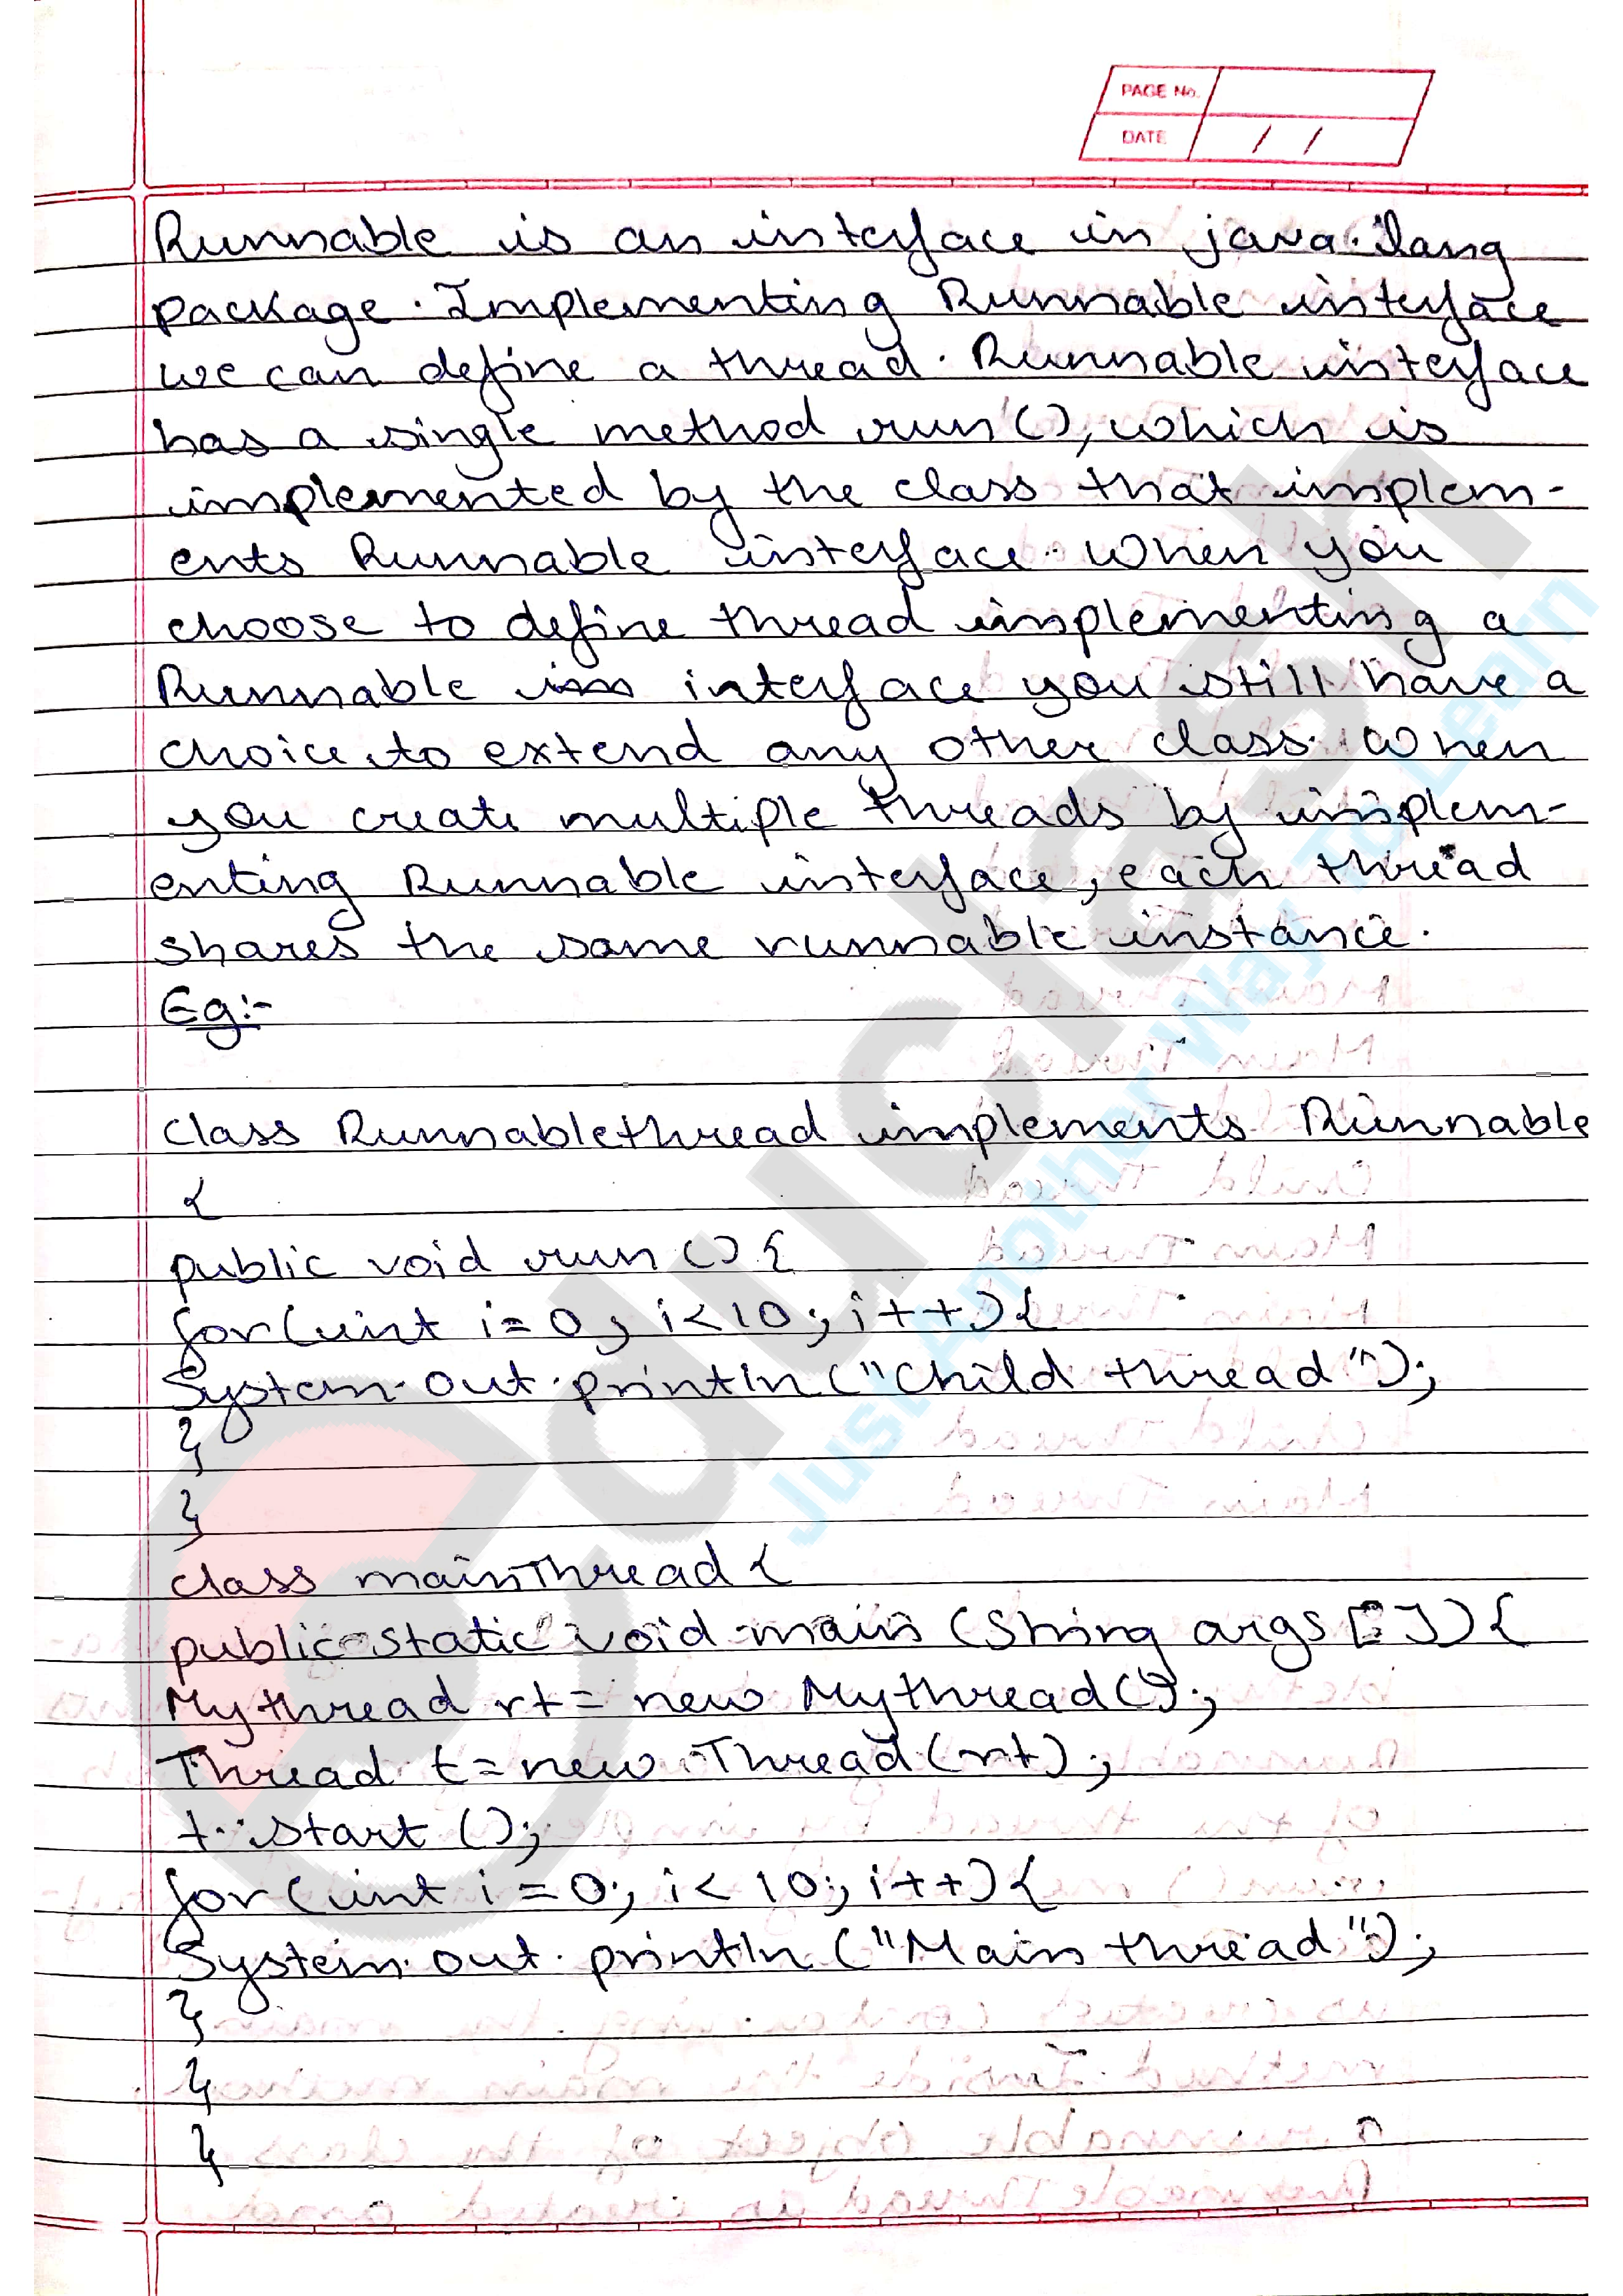 PAGE No.
DATE / /
Runnable is an interface in java.lang
package. Implementing Runnable interface
we can define a thread. Runnable interface
has a single method run(), which is
implemented by the class that implem-
ents Runnable interface. When you
choose to define thread implementing a
Runnable interface you still have a
choice to extend any other class. When
you create multiple threads by implem-
enting Runnable interface, each thread
shares the same runnable instance.
Eg:-
class Runnablethread implements Runnable
{
public void run () {
for (int i=0; i<10; i++) {
System.out.println ("Child thread");
}
}
class mainThread {
public static void main (String args []) {
Mythread rt = new Mythread();
Thread t = new Thread (rt);
t.start ();
for (int i = 0; i < 10; i++) {
System.out.println ("Main thread");
}
}
}
Educlash
Just Another Way To Learn